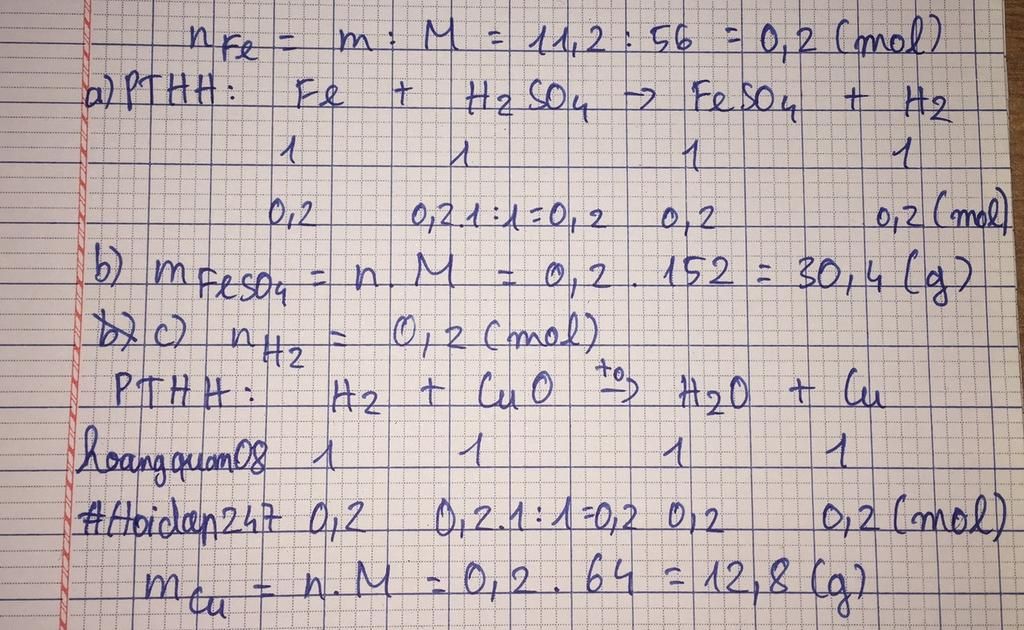 nFe = m : M = 11,2 : 56 = 0,2 (mol)
a) PTHH: Fe + H2SO4 → FeSO4 + H2
1 1 1 1
0,2 0,2.1:1=0,2 0,2 0,2 (mol)
b) mFeSO4 = n.M = 0,2 . 152 = 30,4 (g)
b) c) nH2 = 0,2 (mol)
PTHH: H2 + CuO to→ H2O + Cu
hoangquan08 1 1 1 1
#Hoidap247 0,2 0,2.1:1=0,2 0,2 0,2 (mol)
mCu = n.M = 0,2 . 64 = 12,8 (g)